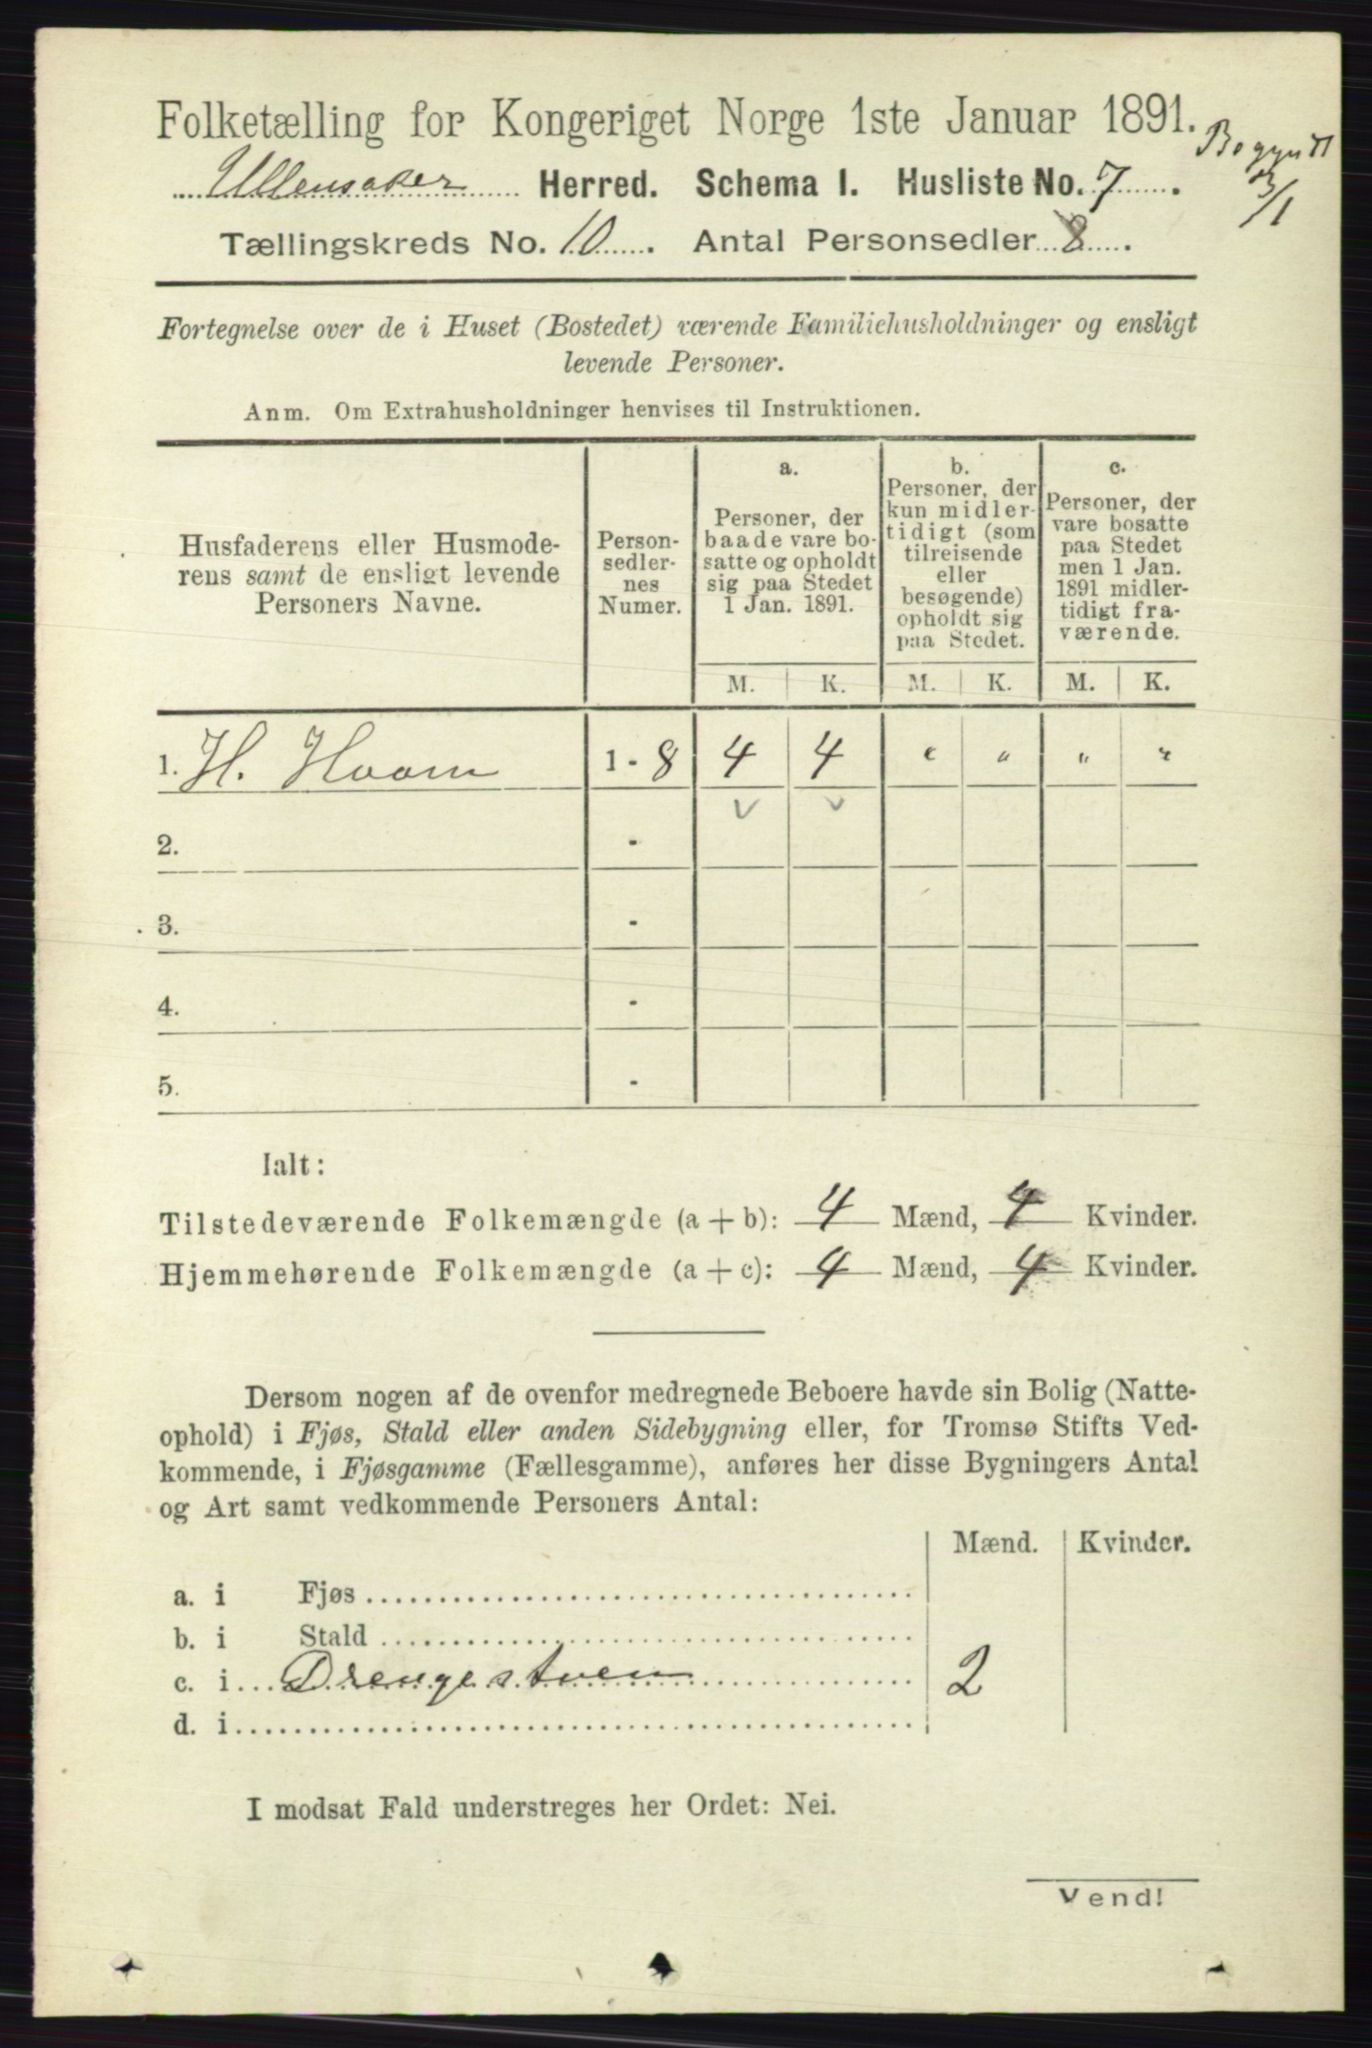 Folketælling for Kongeriget Norge 1ste Januar 1891.
Begyndt
3/1
Ullensaker Herred. Schema I. Husliste No. 7.
Tællingskreds No. 10. Antal Personsedler 8.
Fortegnelse over de i Huset (Bostedet) værende Familiehusholdninger og ensligt
levende Personer.
Anm. Om Extrahusholdninger henvises til Instruktionen.
Husfaderens eller Husmode-
rens samt de ensligt levende
Personers Navne.
Person-
sedler-
nes
Numer.
a.
Personer, der
baade vare bo-
satte og opholdt
sig paa Stedet
1 Jan. 1891.
b.
Personer, der
kun midler-
tidigt (som
tilreisende
eller
besøgende)
opholdt sig
paa Stedet.
c.
Personer, der
vare bosatte
paa Stedet
men 1 Jan.
1891 midler-
tidigt fra-
værende.
M. K. M. K. M. K.
1. H. Hoom 1 - 8 4 4 " " " "
2. -
3. -
4. -
5. -
Ialt:
Tilstedeværende Folkemængde (a + b): 4 Mænd, 4 Kvinder.
Hjemmehørende Folkemængde (a + c): 4 Mænd, 4 Kvinder.
Dersom nogen af de ovenfor medregnede Beboere havde sin Bolig (Natte-
ophold) i Fjøs, Stald eller anden Sidebygning eller, for Tromsø Stifts Ved-
kommende, i Fjøsgamme (Fællesgamme), anføres her disse Bygningers Antal
og Art samt vedkommende Personers Antal:
Mænd. Kvinder.
a. i Fjøs
b. i Stald
c. i Drengestuen 2
d. i
I modsat Fald understreges her Ordet: Nei.
Vend!